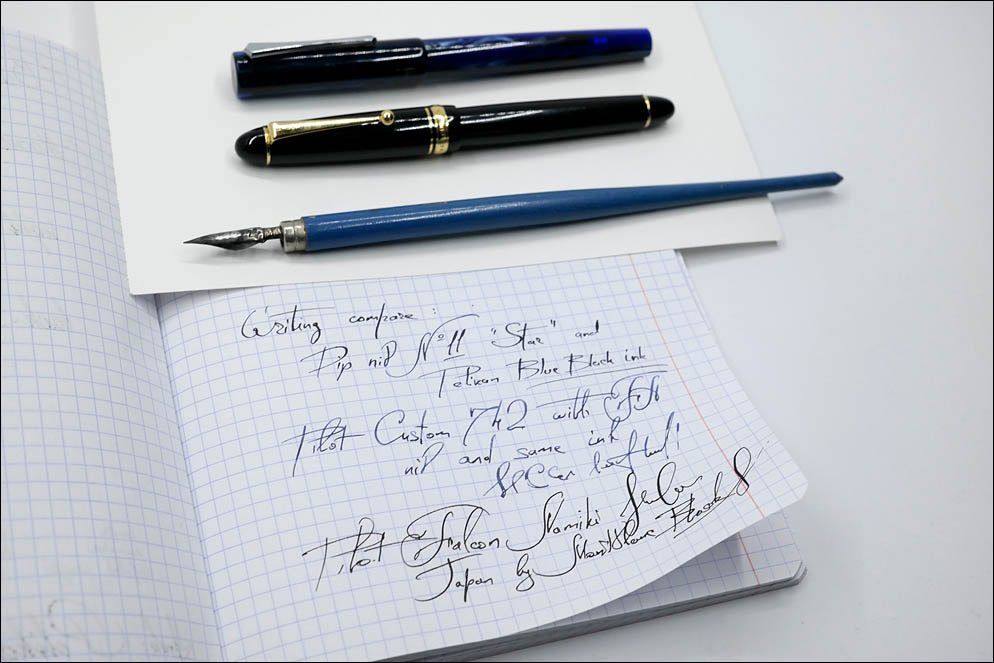 Writing compare :
Dip nib № 11 "Star" and
Pelikan Blue Black ink
Pilot Custom 742 with FA
nib and same ink
Pilot Falcon Namiki
Japan by Montblanc Black